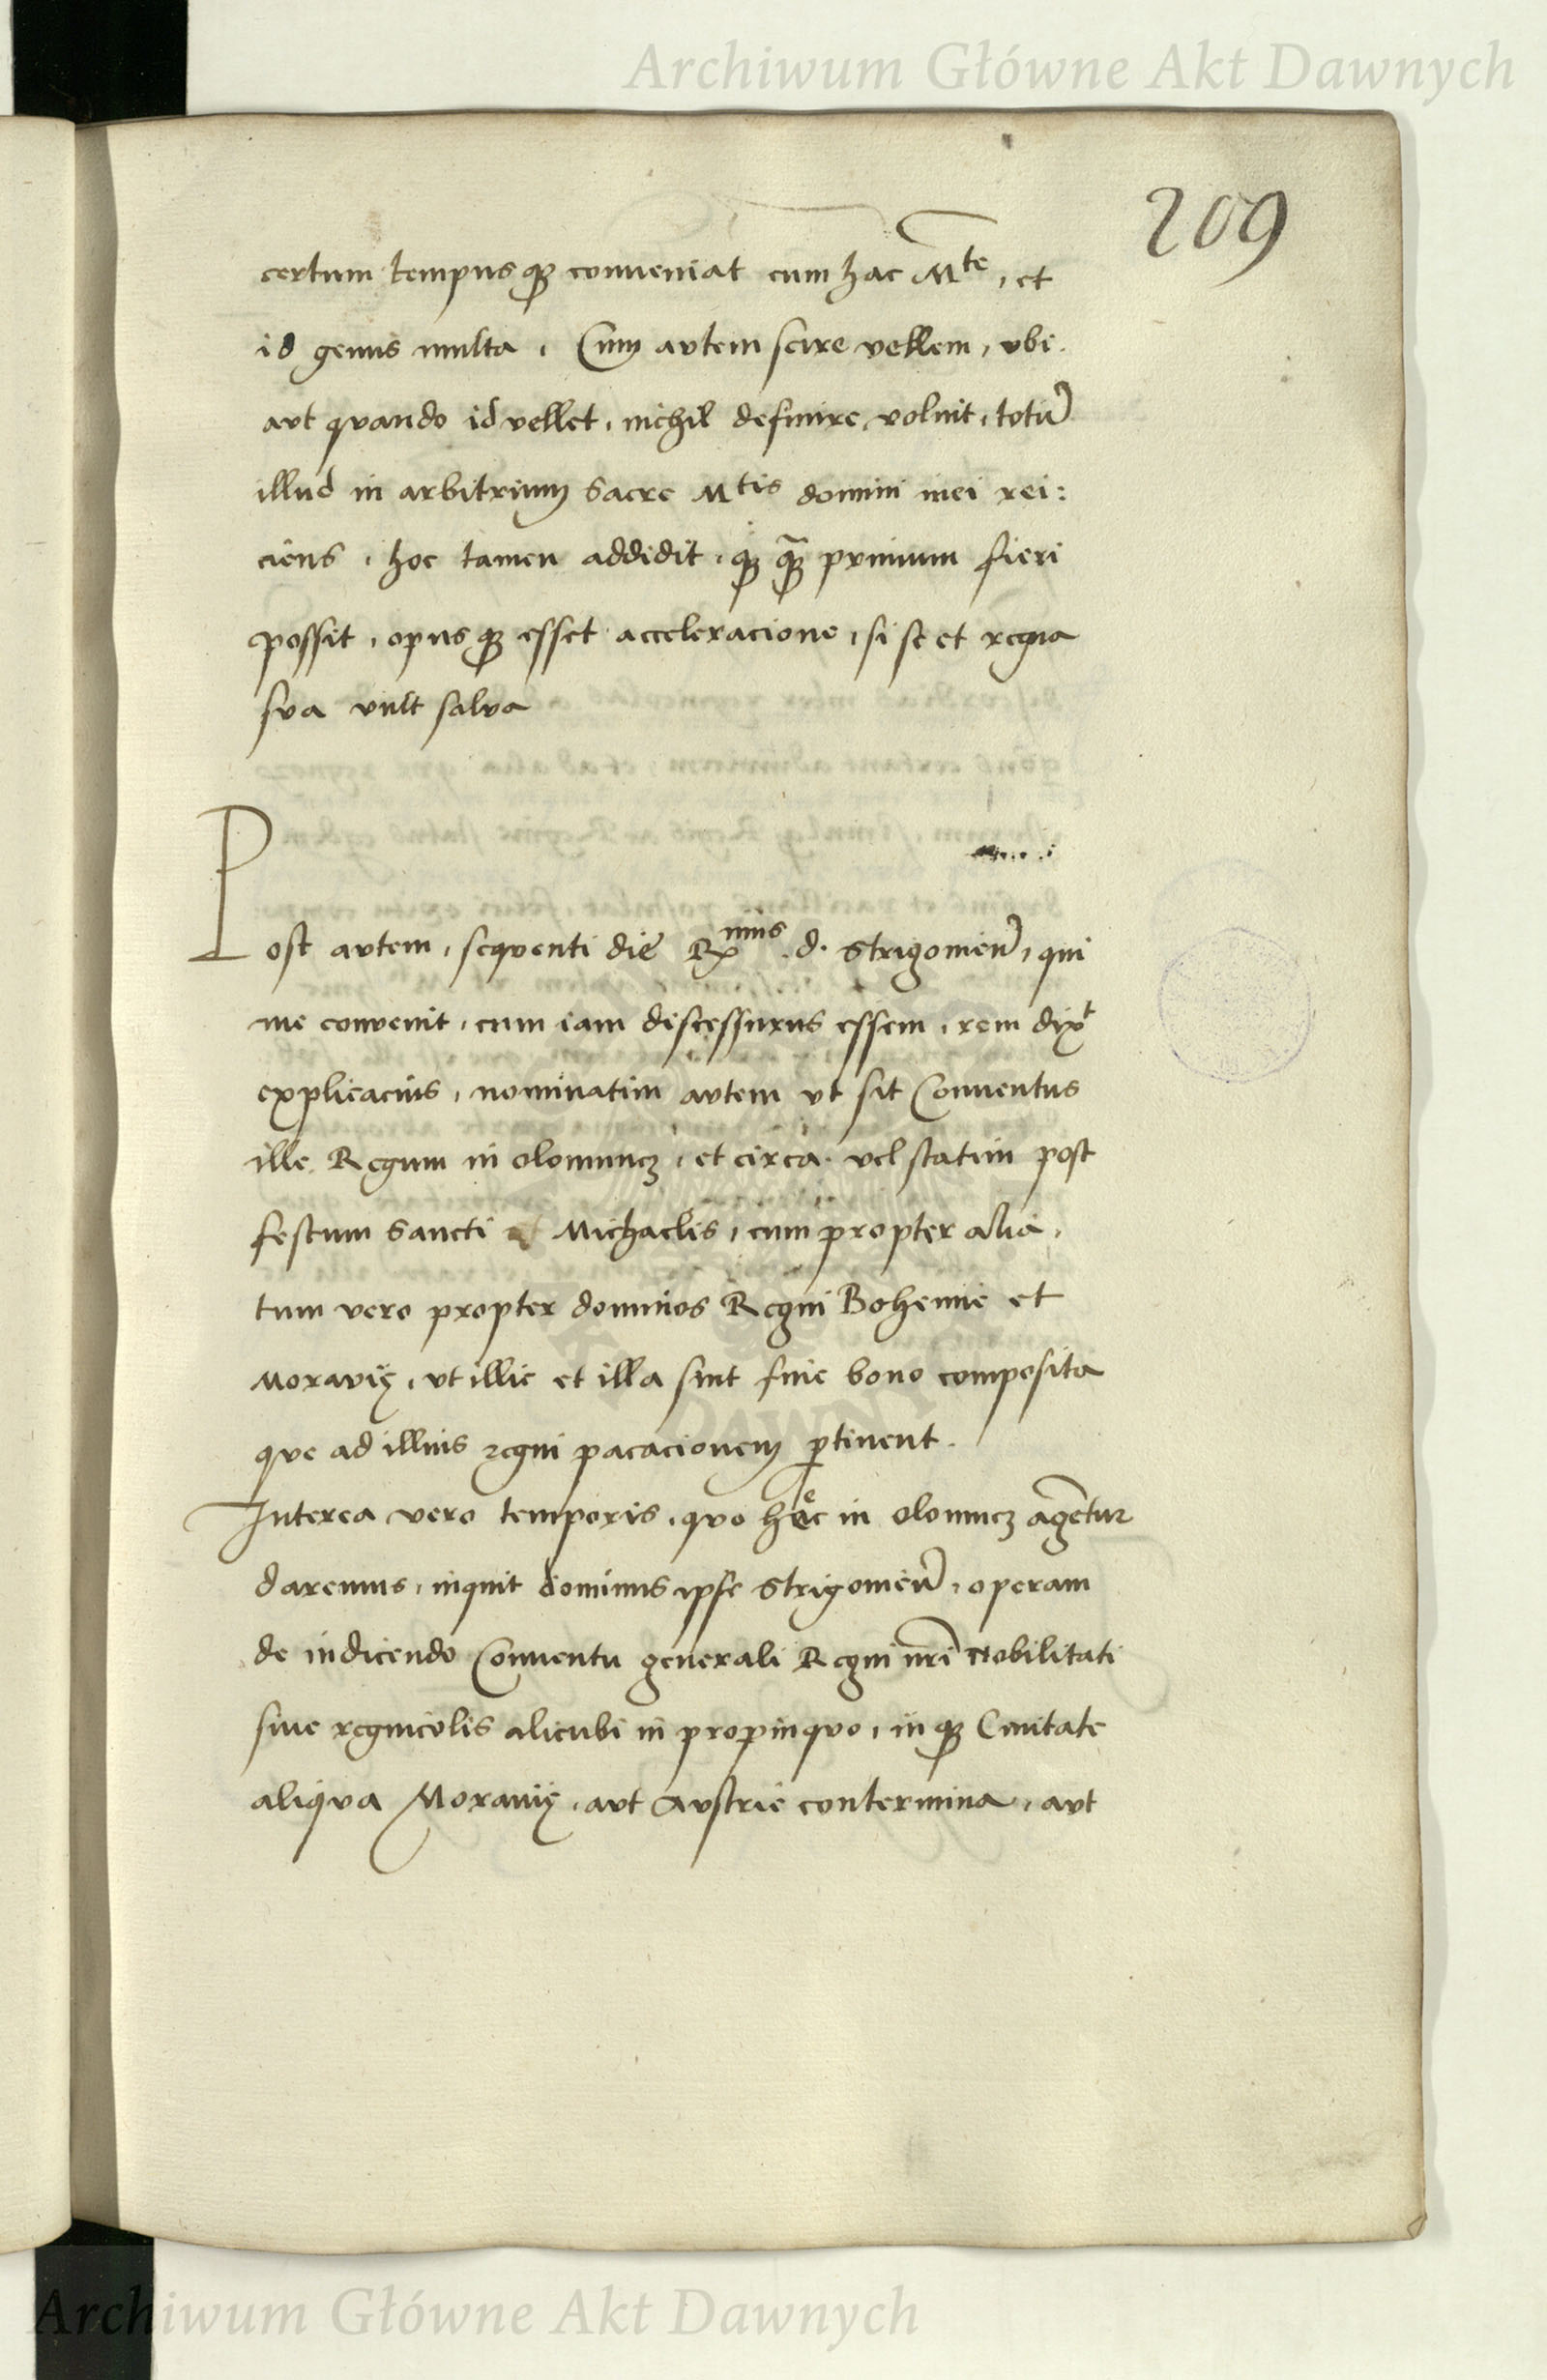 Archiwum Główne Akt Dawnych
209
certum tempus qꝫ conueniat cum hac Mte, et
id genus multa, Cum avtem scire vellem, vbi
avt qvando id vellet, nichil definire volnit, totū
illud in arbitrium Sacre Mtis domini mei rei:
ciens, hoc tamen addidit, qꝫ qꝫ̄ primum fieri
possit, opus qꝫ esset acceleracione, si se et regna
sva vult salva
Post avtem, seqventi die Rmus d. Strigonień, qui
me convenit, cum iam discessurus essem, rem dixt
explicacius, nominatim avtem vt sit Conuentus
ille Regum in olomuncz, et circa vel statim post
festum Sancti Michaelis, cum propter alia,
tum vero propter dominos Regni Bohemie et
Moravię, vt illic et illa sint fine bono composita
qve ad illius regni pacacionem ꝑtinent.
Interea vero temporis, qvo hęc in olomucz agētur
daremus, inquit dominus ipse Strigonień, operam
de indicendo Conuentu generali Regni nrī Nobilitati
siue regnicolis alicubi in propinqvo, in qꝫ Ciuitate
aliqva Morauię, avt Avstrie contermina, avt
Archiwum Główne Akt Dawnych